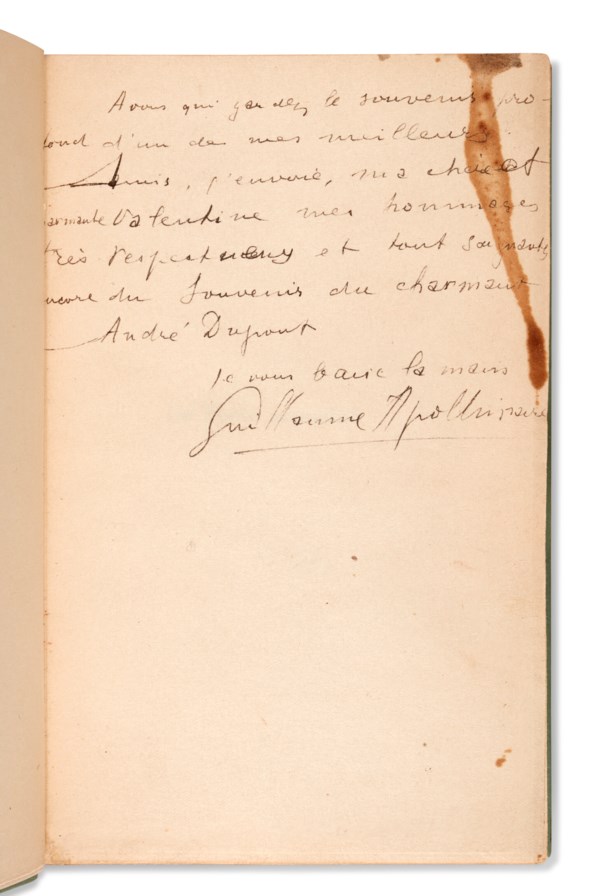 A vous qui gardez le souvenir pro-
fond d'un de mes meilleurs
Amis, j'envoie, ma chère et
charmante Valentine mes hommages
très respectueux et tout saignants
encore du souvenir du charmant
André Dupont
Je vous baise la main
Guillaume Apollinaire